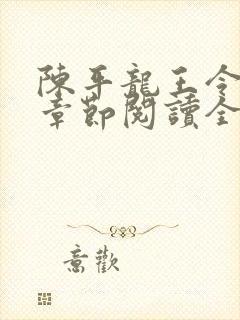 陳平龍王令
章節閱讀全
意歡